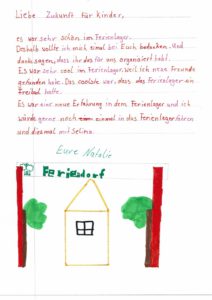 Liebe Zukunft für kinder,
es war sehr schön im Ferienlager.
Deshalb wollte ich mich eimal bei Euch bedanken. Und
danke sagen, dass ihr das für uns organsiert habt.
Es war sehr cool im Ferienlager. weil ich neue Freunde
gefunden habe. Das coolste war, dass das ferienlager ein
Freibad hatte.
Es war eine neue Erfahrung in dem Ferienlager und ich
würde gerne noch einmal in das Ferienlager fahren
und diesmal mit Selina.
Eure Natalie
Feriendorf